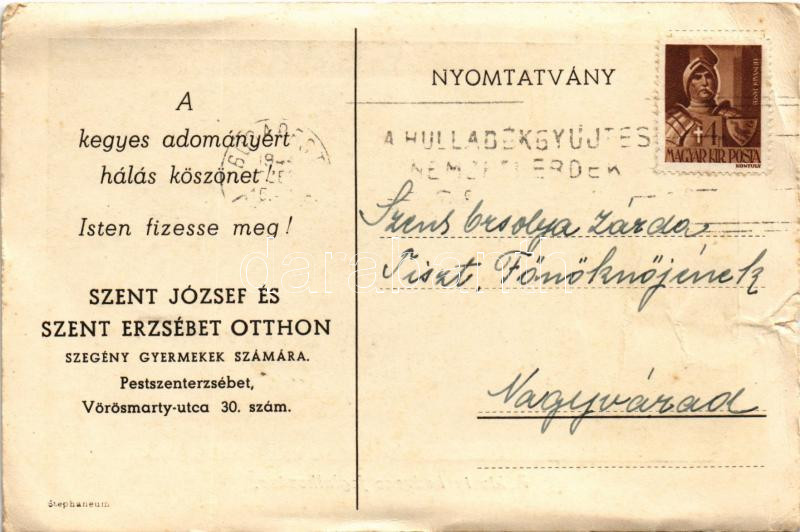 A
kegyes adományért
hálás köszönet!
Isten fizesse meg!
SZENT JÓZSEF ÉS
SZENT ERZSÉBET OTTHON
SZEGÉNY GYERMEKEK SZÁMÁRA.
Pestszenterzsébet,
Vörösmarty-utca 30. szám.
Stephaneum
NYOMTATVÁNY
4
MAGYAR KIR. POSTA
A HULLADÉKGYŰJTÉS
NEMZETI ÉRDEK
Szent Orsolya Zárda
Tiszt. Főnöknőjének
Nagyvárad
darabanth